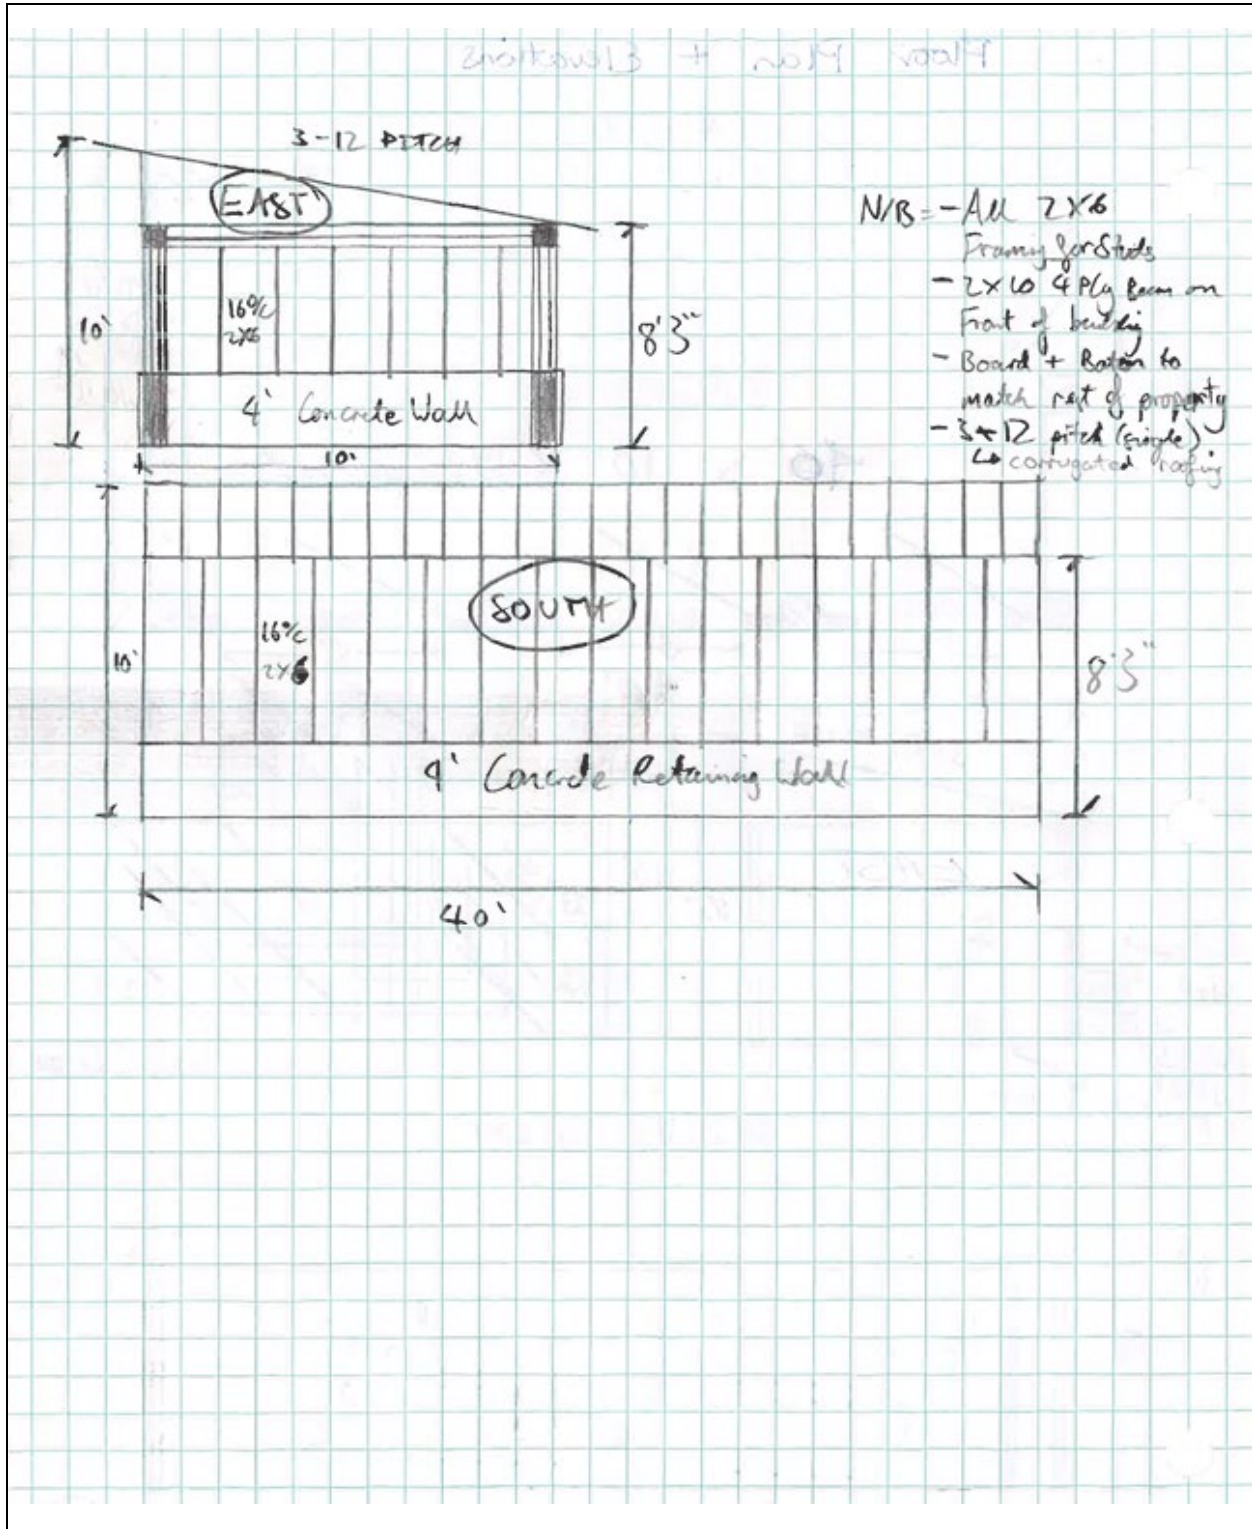 Floor Plan + Elevations
3-12 PITCH
EAST
10'
16"/c
2x6
8'3"
4' Concrete Wall
10'
N/B = - All 2x6
Framing for Studs
- 2x10 4 Ply Beam on
Front of building
- Board + Baten to
match rest of property
- 3-12 pitch (single)
↳ corrugated roofing
SOUTH
10'
16"/c
2x6
8'3"
4' Concrete Retaining Wall
40'